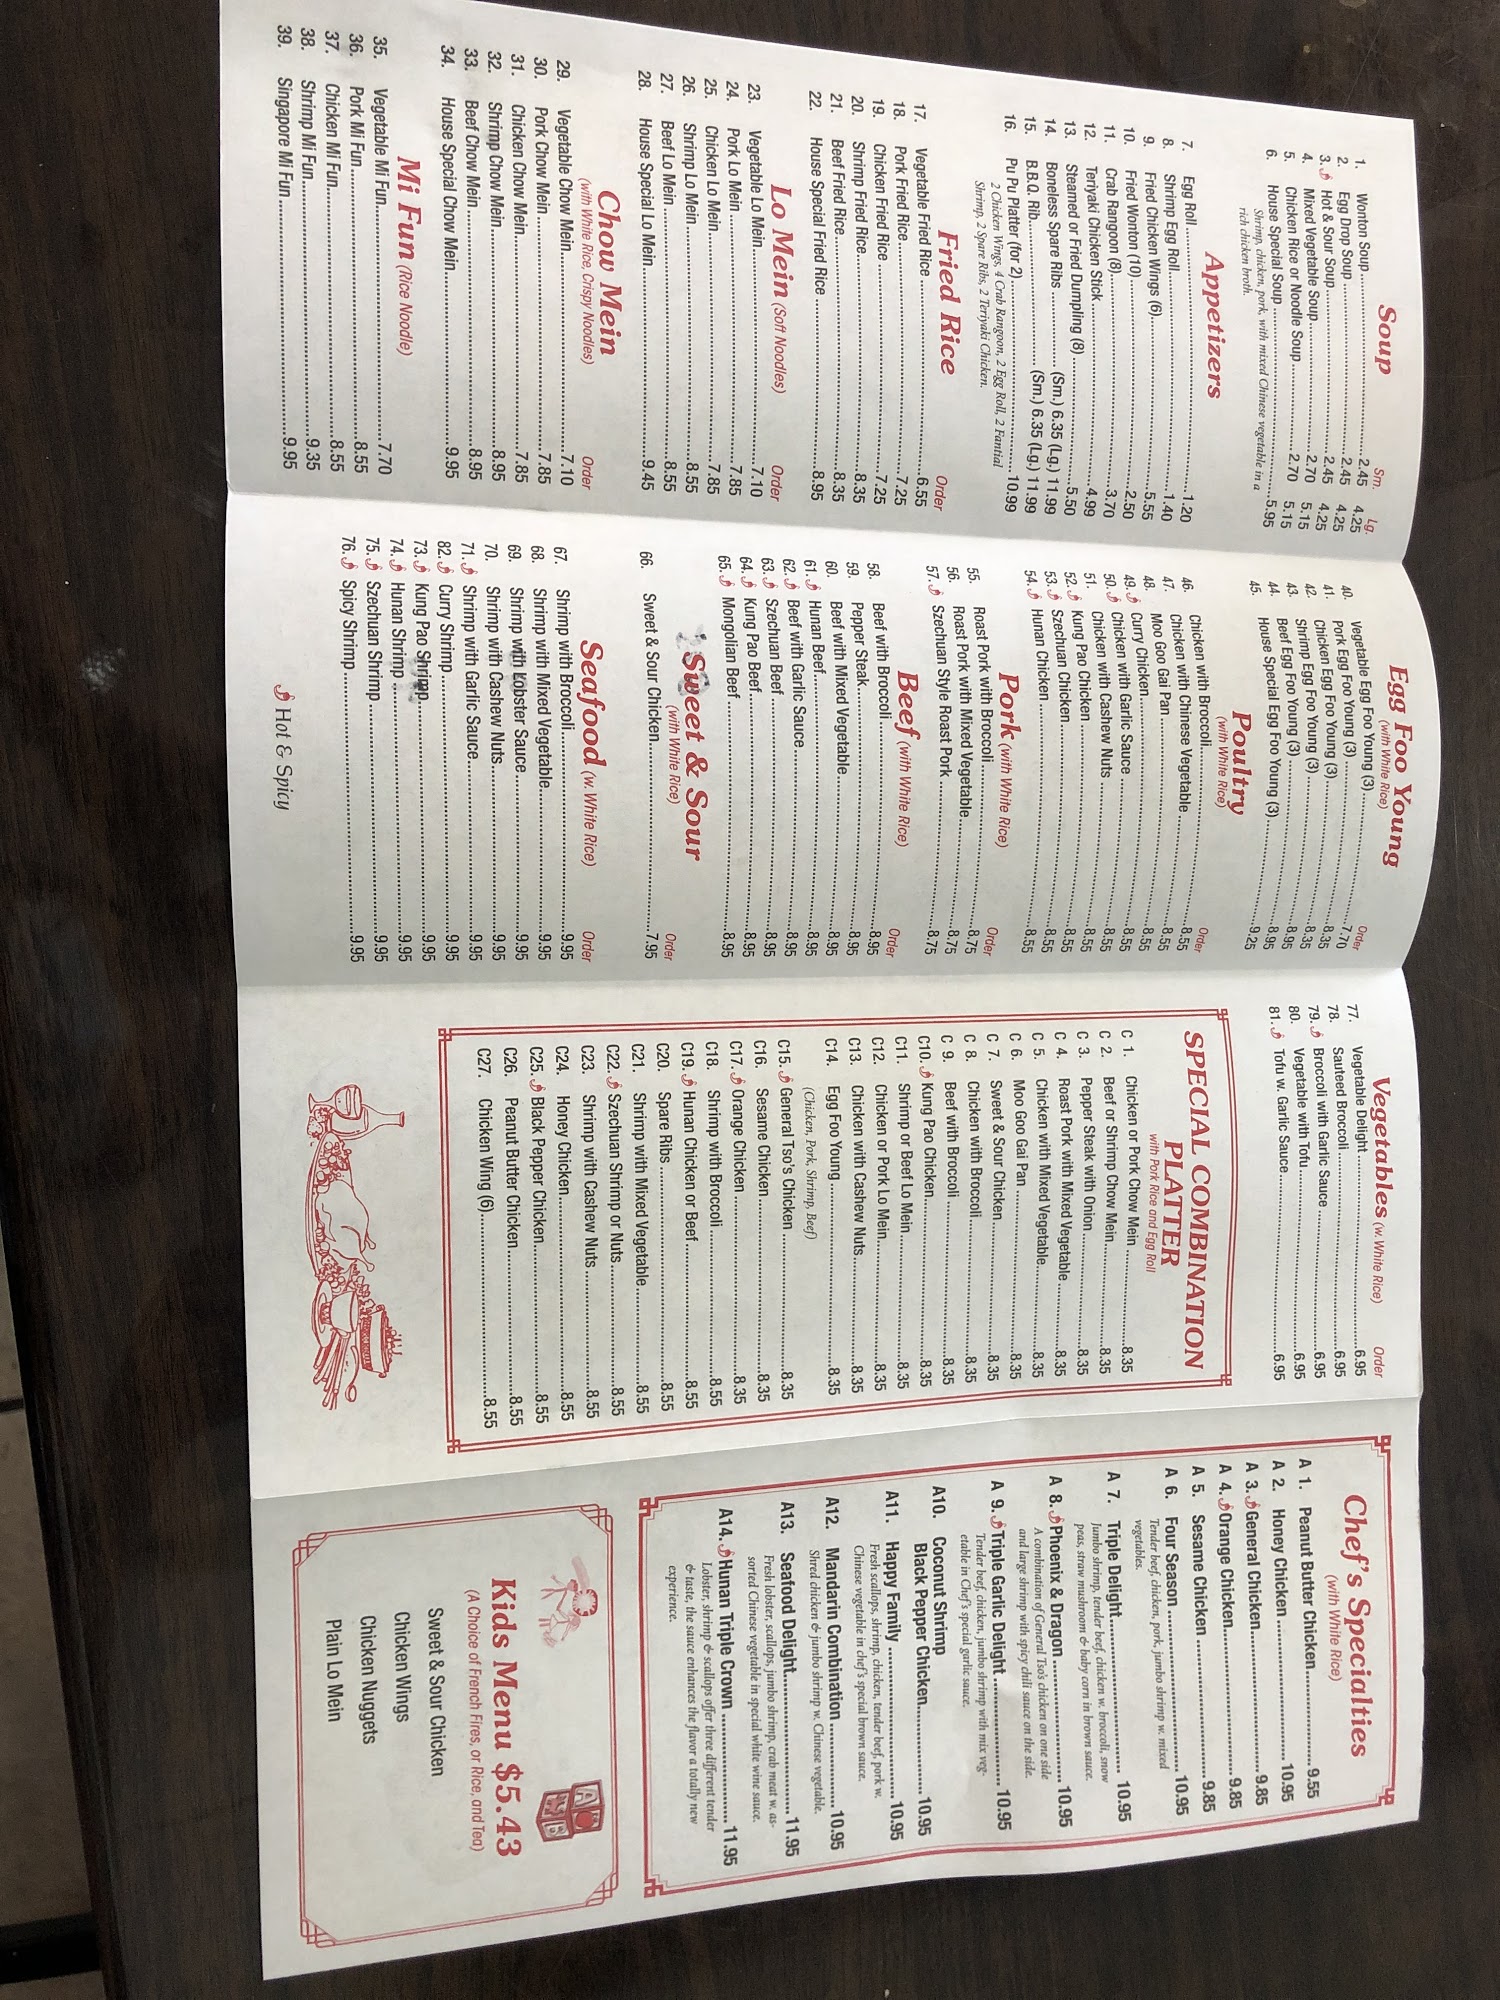 Soup
Sm. Lg.
1. Wonton Soup 2.45 4.25
2. Egg Drop Soup 2.45 4.25
3. Hot & Sour Soup 2.45 4.25
4. Mixed Vegetable Soup 2.70 5.15
5. Chicken Rice or Noodle Soup 2.70 5.15
6. House Special Soup 5.95
Shrimp, chicken, pork, with mixed Chinese vegetable in a
rich chicken broth.
Appetizers
7. Egg Roll 1.20
8. Shrimp Egg Roll 1.40
9. Fried Chicken Wings (6) 5.55
10. Fried Wonton (10) 2.50
11. Crab Rangoon (8) 3.70
12. Teriyaki Chicken Stick 4.99
13. Steamed or Fried Dumpling (8) 5.50
14. Boneless Spare Ribs (Sm.) 6.35 (Lg.) 11.99
15. B.B.Q. Rib (Sm.) 6.35 (Lg.) 11.99
16. Pu Pu Platter (for 2) 10.99
2 Chicken Wings, 4 Crab Rangoon, 2 Egg Roll, 2 Fantial
Shrimp, 2 Spare Ribs, 2 Teriyaki Chicken.
Fried Rice
Order
17. Vegetable Fried Rice 6.55
18. Pork Fried Rice 7.25
19. Chicken Fried Rice 7.25
20. Shrimp Fried Rice 8.35
21. Beef Fried Rice 8.35
22. House Special Fried Rice 8.95
Lo Mein (Soft Noodles)
Order
23. Vegetable Lo Mein 7.10
24. Pork Lo Mein 7.85
25. Chicken Lo Mein 7.85
26. Shrimp Lo Mein 8.55
27. Beef Lo Mein 8.55
28. House Special Lo Mein 9.45
Chow Mein
(with White Rice, Crispy Noodles)
Order
29. Vegetable Chow Mein 7.10
30. Pork Chow Mein 7.85
31. Chicken Chow Mein 7.85
32. Shrimp Chow Mein 8.95
33. Beef Chow Mein 8.95
34. House Special Chow Mein 9.95
Mi Fun (Rice Noodle)
35. Vegetable Mi Fun 7.70
36. Pork Mi Fun 8.55
37. Chicken Mi Fun 8.55
38. Shrimp Mi Fun 9.35
39. Singapore Mi Fun 9.95
Egg Foo Young
(with White Rice)
Order
40. Vegetable Egg Foo Young (3) 7.70
41. Pork Egg Foo Young (3) 8.35
42. Chicken Egg Foo Young (3) 8.35
43. Shrimp Egg Foo Young (3) 8.95
44. Beef Egg Foo Young (3) 8.95
45. House Special Egg Foo Young (3) 9.25
Poultry
(with White Rice)
Order
46. Chicken with Broccoli 8.55
47. Chicken with Chinese Vegetable 8.55
48. Moo Goo Gai Pan 8.55
49. Curry Chicken 8.55
50. Chicken with Garlic Sauce 8.55
51. Chicken with Cashew Nuts 8.55
52. Kung Pao Chicken 8.55
53. Szechuan Chicken 8.55
54. Hunan Chicken 8.55
Pork (with White Rice)
Order
55. Roast Pork with Broccoli 8.75
56. Roast Pork with Mixed Vegetable 8.75
57. Szechuan Style Roast Pork 8.75
Beef (with White Rice)
Order
58. Beef with Broccoli 8.95
59. Pepper Steak 8.95
60. Beef with Mixed Vegetable 8.95
61. Hunan Beef 8.95
62. Beef with Garlic Sauce 8.95
63. Szechuan Beef 8.95
64. Kung Pao Beef 8.95
65. Mongolian Beef 8.95
Sweet & Sour
(with White Rice)
Order
66. Sweet & Sour Chicken 7.95
Seafood (w. White Rice)
Order
67. Shrimp with Broccoli 9.95
68. Shrimp with Mixed Vegetable 9.95
69. Shrimp with Lobster Sauce 9.95
70. Shrimp with Cashew Nuts 9.95
71. Shrimp with Garlic Sauce 9.95
82. Curry Shrimp 9.95
73. Kung Pao Shrimp 9.95
74. Hunan Shrimp 9.95
75. Szechuan Shrimp 9.95
76. Spicy Shrimp 9.95
Hot & Spicy
Vegetables (w. White Rice)
Order
77. Vegetable Delight 6.95
78. Sauteed Broccoli 6.95
79. Broccoli with Garlic Sauce 6.95
80. Vegetable with Tofu 6.95
81. Tofu w. Garlic Sauce 6.95
SPECIAL COMBINATION
PLATTER
with Pork Rice and Egg Roll
C 1. Chicken or Pork Chow Mein 8.35
C 2. Beef or Shrimp Chow Mein 8.35
C 3. Pepper Steak with Onion 8.35
C 4. Roast Pork with Mixed Vegetable 8.35
C 5. Chicken with Mixed Vegetable 8.35
C 6. Moo Goo Gai Pan 8.35
C 7. Sweet & Sour Chicken 8.35
C 8. Chicken with Broccoli 8.35
C 9. Beef with Broccoli 8.35
C10. Kung Pao Chicken 8.35
C11. Shrimp or Beef Lo Mein 8.35
C12. Chicken or Pork Lo Mein 8.35
C13. Chicken with Cashew Nuts 8.35
C14. Egg Foo Young 8.35
(Chicken, Pork, Shrimp, Beef)
C15. General Tso's Chicken 8.35
C16. Sesame Chicken 8.35
C17. Orange Chicken 8.35
C18. Shrimp with Broccoli 8.55
C19. Hunan Chicken or Beef 8.55
C20. Spare Ribs 8.55
C21. Shrimp with Mixed Vegetable 8.55
C22. Szechuan Shrimp or Nuts 8.55
C23. Shrimp with Cashew Nuts 8.55
C24. Honey Chicken 8.55
C25. Black Pepper Chicken 8.55
C26. Peanut Butter Chicken 8.55
C27. Chicken Wing (6) 8.55
Chef's Specialties
(with White Rice)
A 1. Peanut Butter Chicken 9.55
A 2. Honey Chicken 10.95
A 3. General Chicken 9.85
A 4. Orange Chicken 9.85
A 5. Sesame Chicken 9.85
A 6. Four Season 10.95
Tender beef, chicken, pork, jumbo shrimp w. mixed
vegetables.
A 7. Triple Delight 10.95
Jumbo shrimp, tender beef, chicken w. broccoli, snow
peas, straw mushroom & baby corn in brown sauce.
A 8. Phoenix & Dragon 10.95
A combination of General Tso's chicken on one side
and large shrimp with spicy chili sauce on the side.
A 9. Triple Garlic Delight 10.95
Tender beef, chicken, jumbo shrimp with mix veg-
etable in Chef's special garlic sauce.
A10. Coconut Shrimp
Black Pepper Chicken 10.95
A11. Happy Family 10.95
Fresh scallops, shrimp, chicken, tender beef, pork w.
Chinese vegetable in chef's special brown sauce.
A12. Mandarin Combination 10.95
Shred chicken & jumbo shrimp w. Chinese vegetable.
A13. Seafood Delight 11.95
Fresh lobster, scallops, jumbo shrimp, crab meat w. as-
sorted Chinese vegetable in special white wine sauce.
A14. Hunan Triple Crown 11.95
Lobster, shrimp & scallops offer three different tender
& taste, the sauce enhances the flavor a totally new
experience.
Kids Menu $5.43
(A Choice of French Fires, or Rice, and Tea)
Sweet & Sour Chicken
Chicken Wings
Chicken Nuggets
Plain Lo Mein